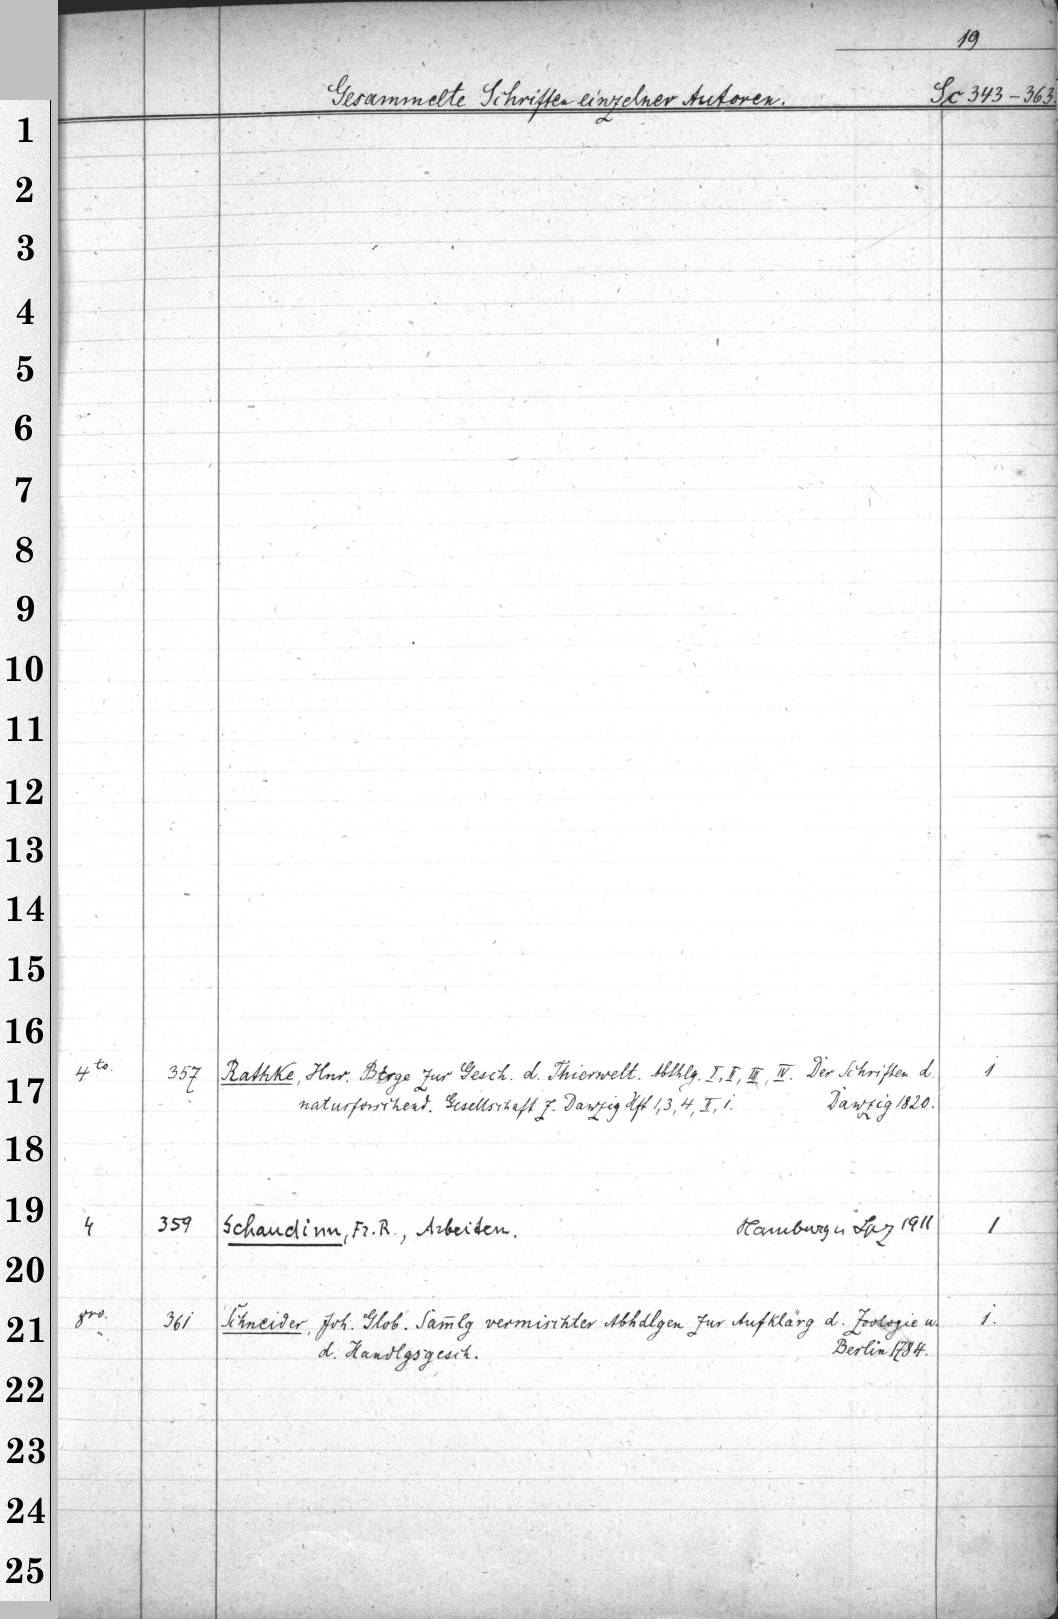 19
Gesammelte Schriften einzelner Autoren. Sc 343-363.
1
2
3
4
5
6
7
8
9
10
11
12
13
14
15
16
4to. 357 Rathke, Hnr. Btrge zur Gesch. d. Thierwelt. Abthlg. I, II, III, IV. Der Schriften d. 1
17
naturforschend. Gesellschaft z. Danzig Hft 1, 3, 4, II, 1. Danzig 1820.
18
19
4 359 Schaudinn, Fr. R., Arbeiten. Hamburg u Lpz 1911 1
20
8vo. 361 Schneider, Joh. Glob. Sam̅lg vermischter Abhdlgen zur Aufklärg d. Zoologie u. 1.
21
d. Handlgsgesch. Berlin 1784.
22
23
24
25